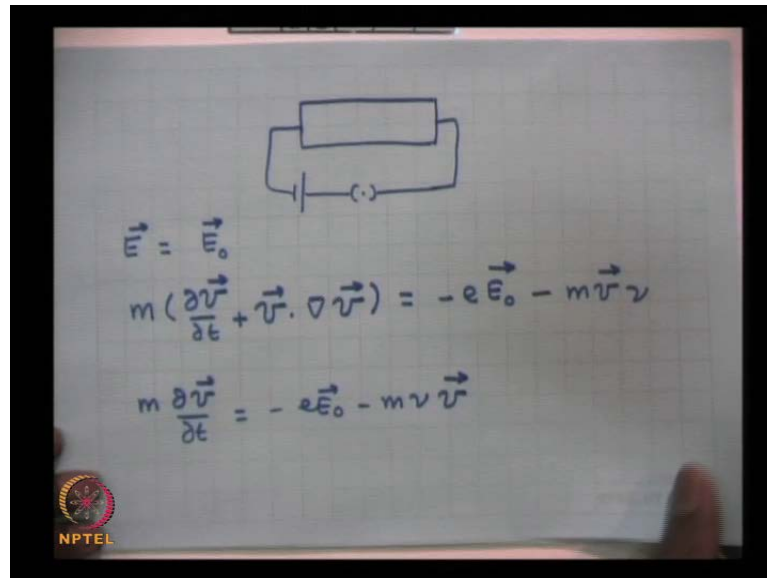 E⃗ = E⃗₀
m(∂v⃗/∂t + v⃗ · ∇v⃗) = -eE⃗₀ - mv⃗ν
m ∂v⃗/∂t = -eE⃗₀ - mνv⃗
NPTEL